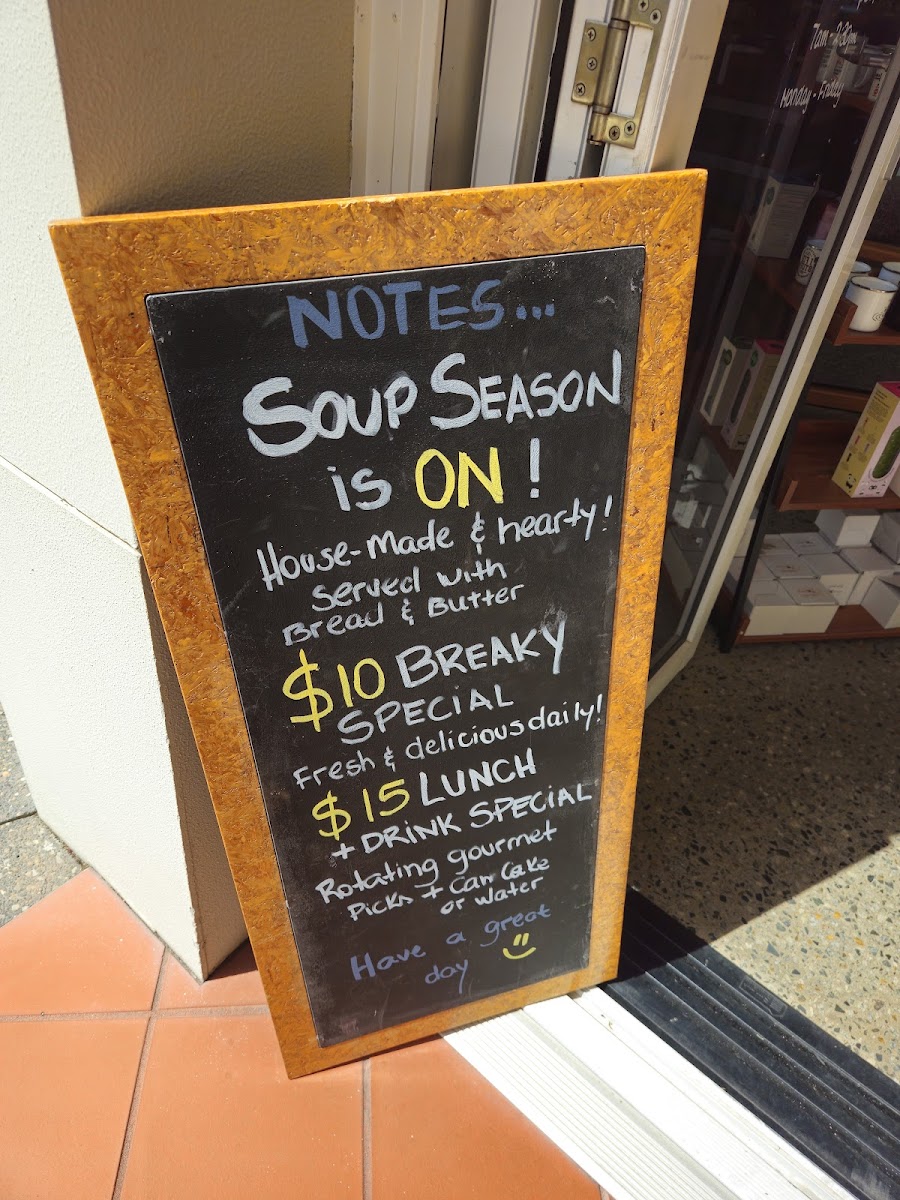 NOTES...
SOUP SEASON
is ON!
House-Made & hearty!
served with
Bread & Butter
$10 BREAKY
SPECIAL
Fresh & delicious daily!
$15 LUNCH
+ DRINK SPECIAL
Rotating gourmet
Picks + Can Coke
or Water
Have a great
day
Monday - Friday